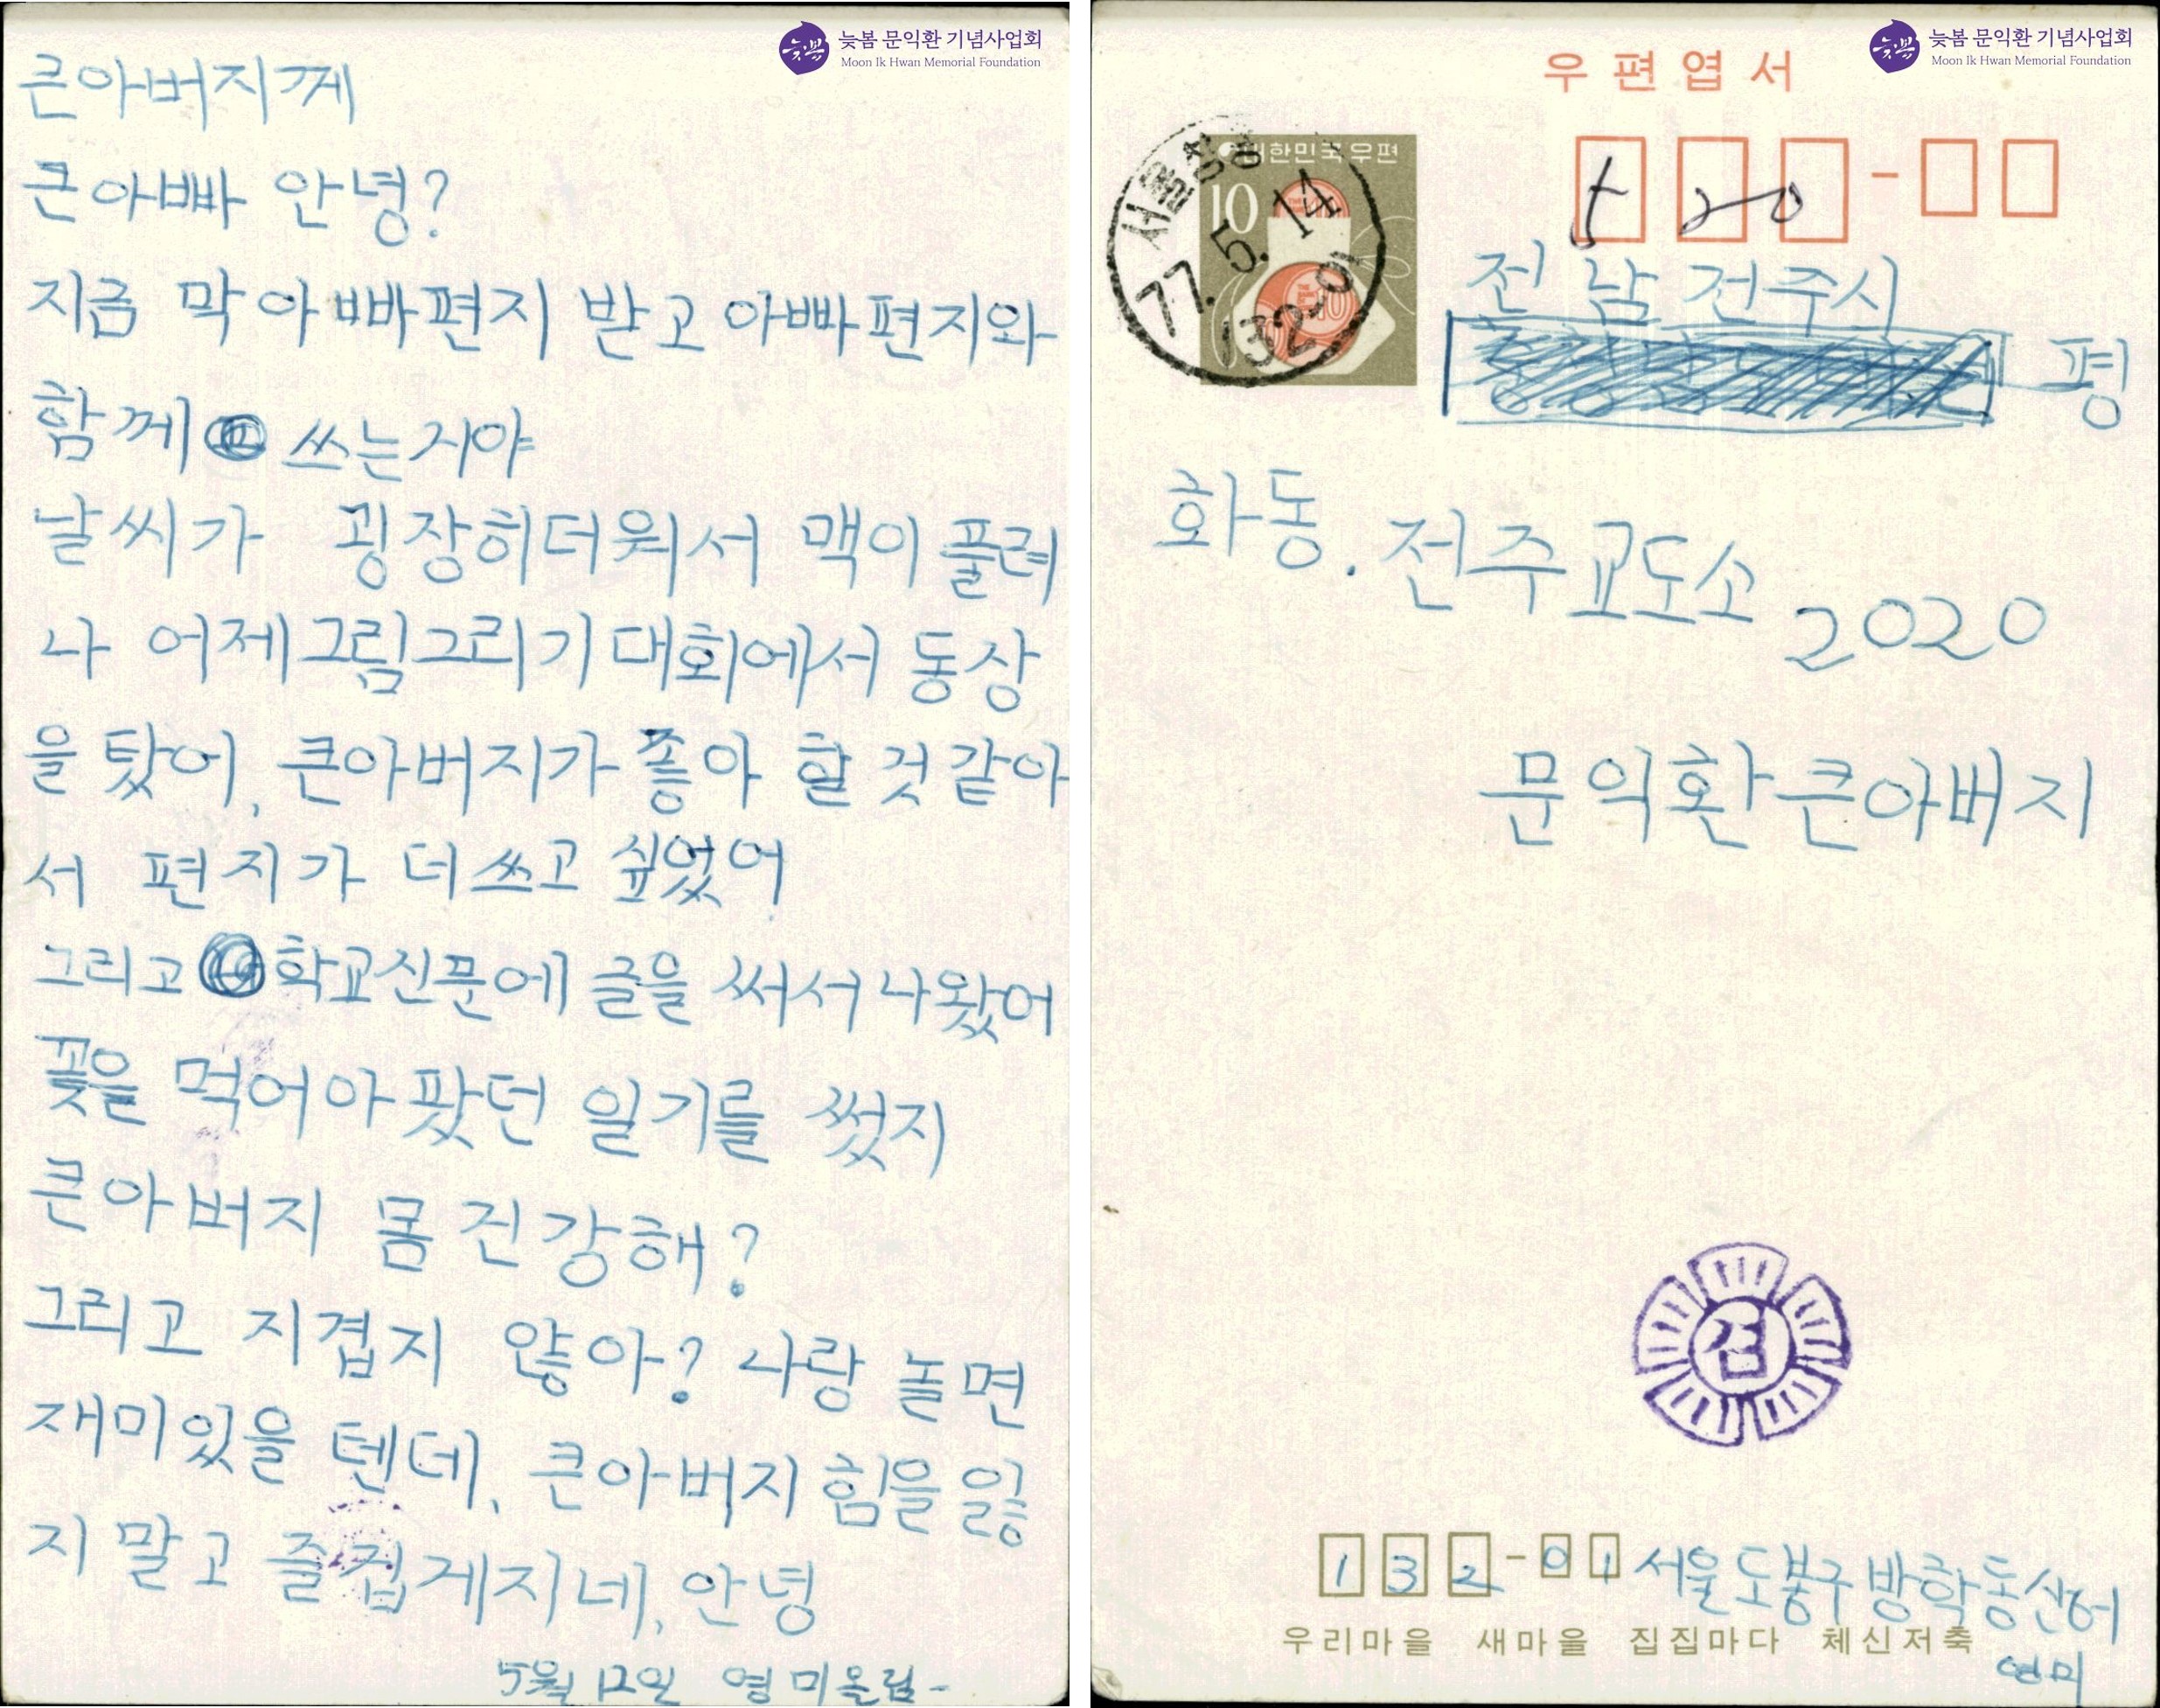 늦봄 문익환 기념사업회
Moon Ik Hwan Memorial Foundation
큰아버지께
큰아빠 안녕?
지금 막 아빠편지 받고 아빠편지와
함께 쓰는거야
날씨가 굉장히더워서 맥이 풀려
나 어제그림그리기대회에서 동상
을 탔어, 큰아버지가 좋아 할 것 같아
서 편지가 더쓰고 싶었어
그리고 학교신문에 글을 써서 나왔어
꽃을 먹어아팠던 일기를 썼지
큰아버지 몸 건강해?
그리고 지겹지 않아? 나랑 놀면
재미있을 텐데, 큰아버지 힘을 잃
지 말고 즐겁게지네, 안녕
5월 12일 영미올림-
늦봄 문익환 기념사업회
Moon Ik Hwan Memorial Foundation
우편엽서
대한민국우편
10
77. 5. 14
132-01
520
전남 전주시
평
화동. 전주교도소 2020
문익환큰아버지
검
132-01 서울도봉구방학동
우리마을 새마을 집집마다 체신저축
영미